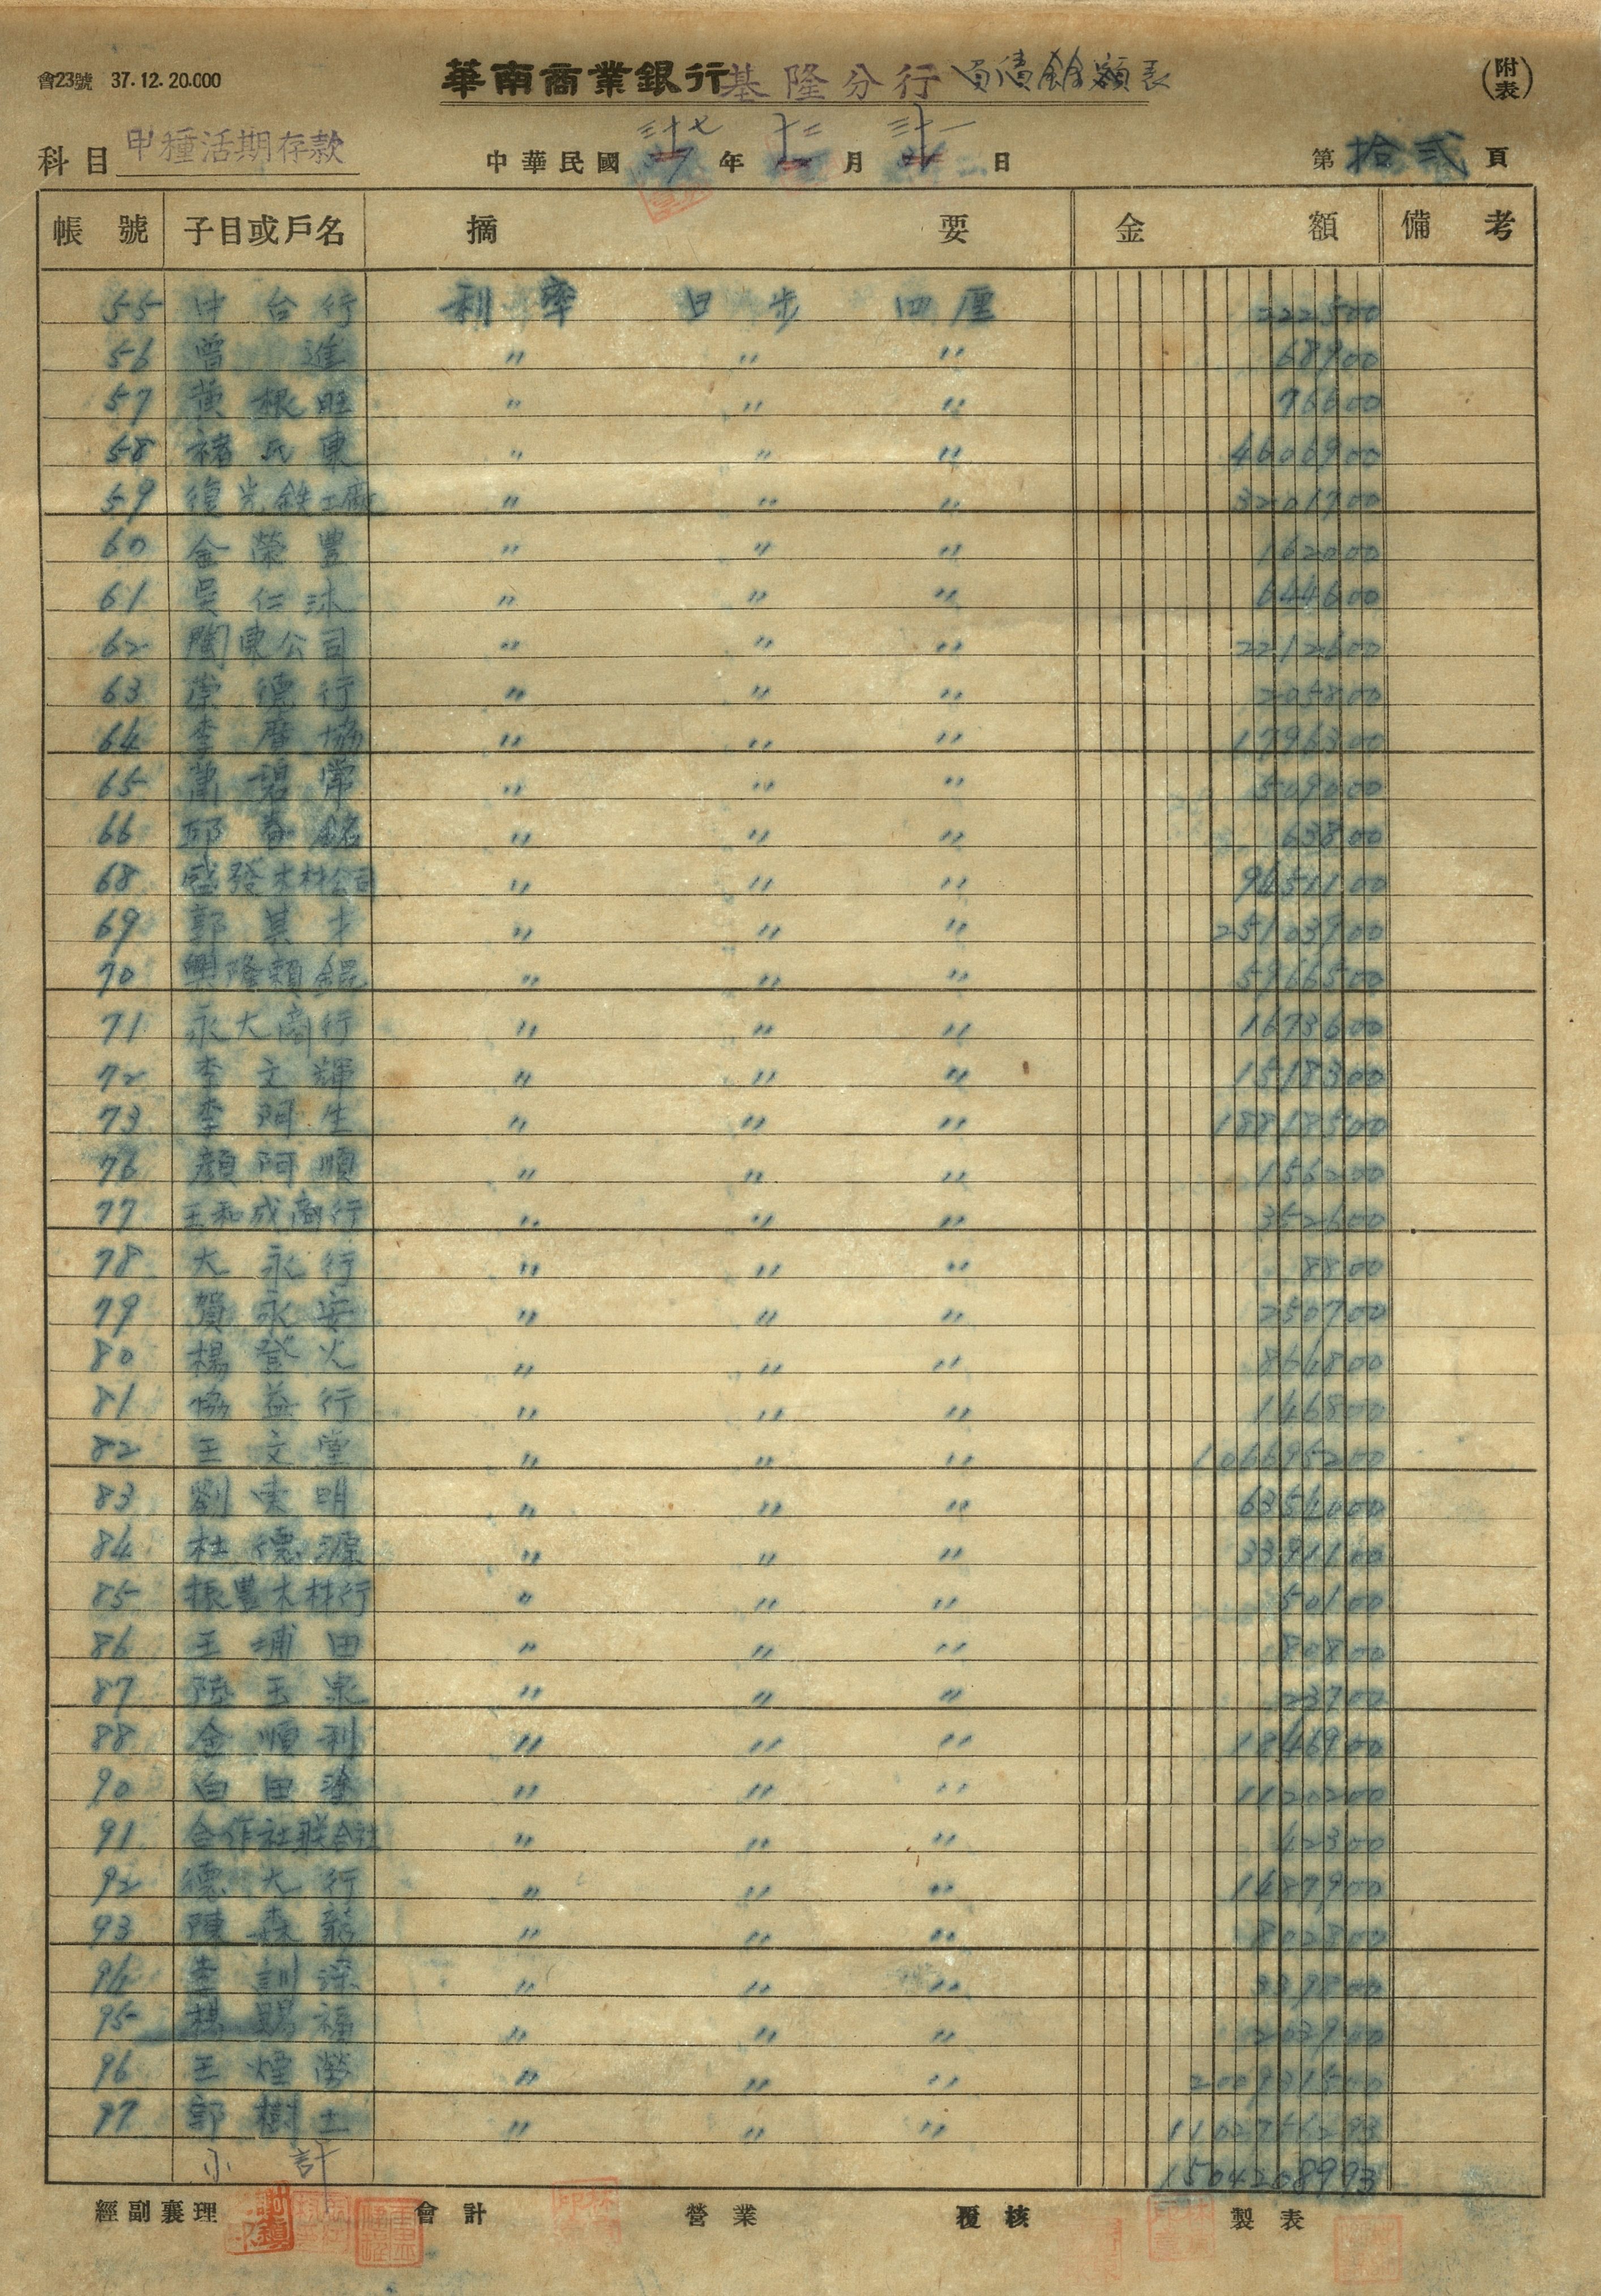 會23號 37.12.20.000
華南商業銀行基隆分行負債餘額表
(附表)
科目 甲種活期存款
中華民國 三十七 年 十二 月 三十一 日
第 拾弍 頁
帳號 子目或戶名 摘要 金額 備考
55 中台行 利率 日步 四厘 222500
56 曾進 〃 〃 〃 68900
57 黃根旺 〃 〃 〃 76600
58 褚氏東 〃 〃 〃 4606900
59 復光鉄工廠 〃 〃 〃 3201900
60 金榮豊 〃 〃 〃 162000
61 吳仁沐 〃 〃 〃 644600
62 閩東公司 〃 〃 〃 2212600
63 崇德行 〃 〃 〃 205800
64 李磨協 〃 〃 〃 1796300
65 葉碧常 〃 〃 〃 509000
66 邱春銘 〃 〃 〃 63800
68 盛發木材公司 〃 〃 〃 9451100
69 郭其才 〃 〃 〃 25103900
70 興隆賴錕 〃 〃 〃 5966500
71 永大商行 〃 〃 〃 1673600
72 李文輝 〃 〃 〃 1518300
73 李阿生 〃 〃 〃 18818500
76 顏阿順 〃 〃 〃 156200
77 王和成商行 〃 〃 〃 352600
78 大永行 〃 〃 〃 8800
79 賀永安 〃 〃 〃 250700
80 楊登火 〃 〃 〃 864800
81 協益行 〃 〃 〃 146800
82 王文堂 〃 〃 〃 106695200
83 劉 明 〃 〃 〃 6354000
84 杜德源 〃 〃 〃 3391100
85 振豊木材行 〃 〃 〃 50100
86 王埔田 〃 〃 〃 80800
87 陸玉泉 〃 〃 〃 23700
88 金順利 〃 〃 〃 1846900
90 白田塗 〃 〃 〃 1120200
91 合作社联合社 〃 〃 〃 42300
92 德大行 〃 〃 〃 1487900
93 陳森 〃 〃 〃 802800
94 李訓深 〃 〃 〃 339800
95 賜福 〃 〃 〃 203900
96 王煙 〃 〃 〃 200931500
97 郭樹土 〃 〃 〃 1102766293
小計 1504208993
經副襄理 會計 營業 覆核 製表